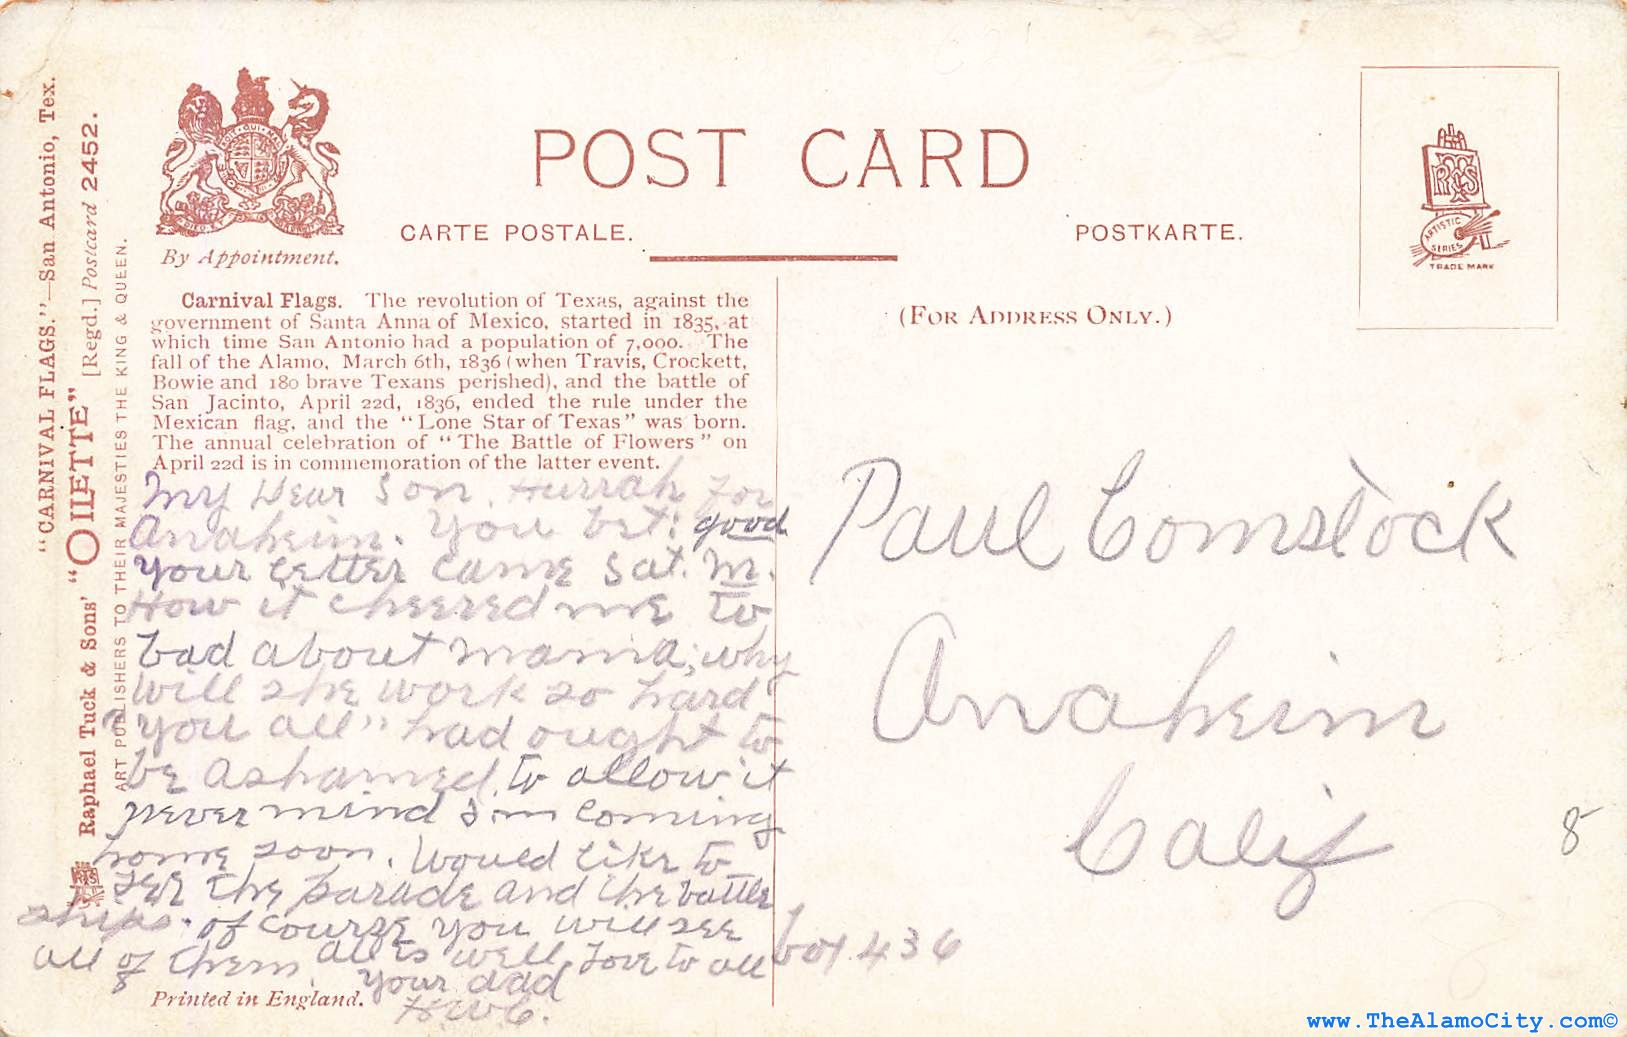 POST CARD
CARTE POSTALE.
POSTKARTE.
By Appointment.
(FOR ADDRESS ONLY.)
RTS
ARTISTIC SERIES
TRADE MARK
"CARNIVAL FLAGS."—San Antonio, Tex.
Raphael Tuck & Sons' "OILETTE" [Regd.] Postcard 2452.
ART PUBLISHERS TO THEIR MAJESTIES THE KING & QUEEN.
Carnival Flags. The revolution of Texas, against the
government of Santa Anna of Mexico, started in 1835, at
which time San Antonio had a population of 7,000. The
fall of the Alamo, March 6th, 1836 (when Travis, Crockett,
Bowie and 180 brave Texans perished), and the battle of
San Jacinto, April 22d, 1836, ended the rule under the
Mexican flag, and the "Lone Star of Texas" was born.
The annual celebration of "The Battle of Flowers" on
April 22d is in commemoration of the latter event.
My Dear Son. Hurrah for
Anaheim. You bet: good
your letter came Sat. M.
How it cheered me to
bad about mama; why
will she work so hard
"you all" had ought to
be ashamed. to allow it
never mind I'm coming
home soon. Would like to
see the parade and the battle
ships. of course you will see
all of them. All is well Love to all
Your dad
H.W.C.
Printed in England.
Paul Comstock
Anaheim
Calif
box 436
8
www.TheAlamoCity.com©